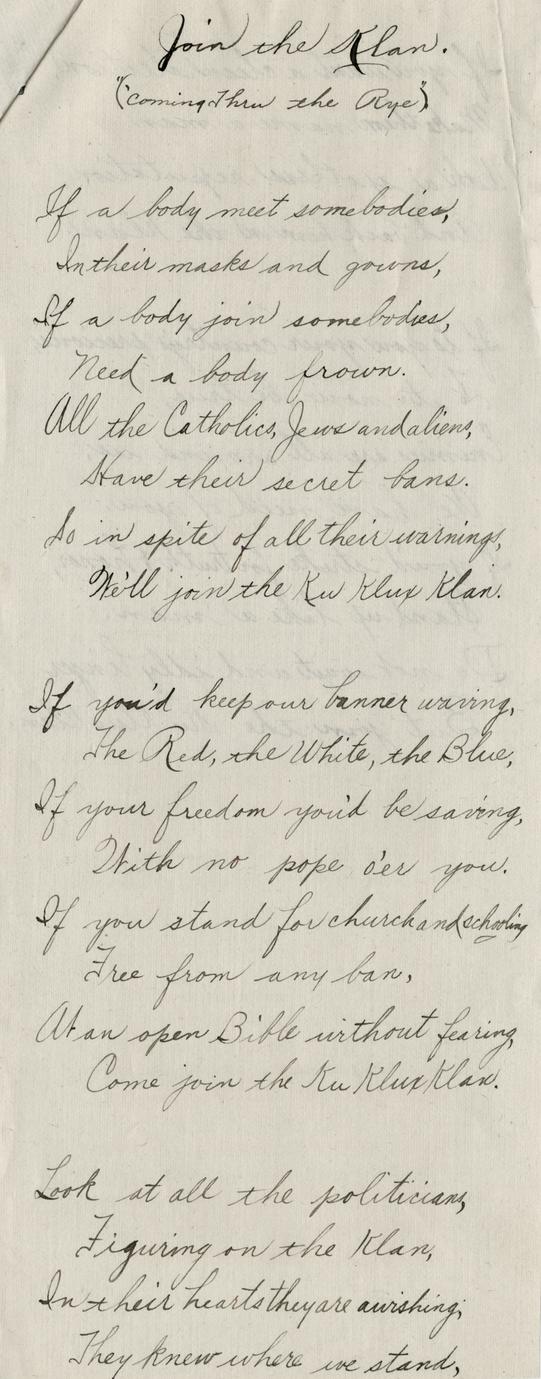 Join the Klan.
("Coming Thru the Rye")
If a body meet somebodies,
In their masks and gowns,
If a body join somebodies,
Need a body frown.
All the Catholics, Jews and aliens,
Have their secret bans.
So in spite of all their warnings,
We'll join the Ku Klux Klan.
If you'd keep our banner waving,
The Red, the White, the Blue,
If your freedom you'd be saving,
With no pope o'er you.
If you stand for church and schooling
Free from any ban,
At an open Bible without fearing,
Come join the Ku Klux Klan.
Look at all the politicians,
Figuring on the Klan,
In their hearts they are awishing,
They knew where we stand,